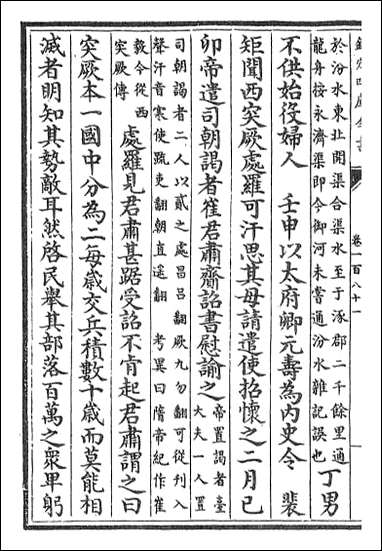 欽定四庫全書
卷一百八十一
於汾水東北開渠合渠水至于涿郡二千餘里通
龍舟按永濟渠即今御河未嘗通汾水雜記誤也
丁男
不供始役婦人　壬申以太府卿元壽為内史令　裴
矩聞西突厥處羅可汗思其母請遣使招懷之二月己
卯帝遣司朝謁者崔君肅齎詔書慰諭之
帝置謁者臺
大夫一人置
司朝謁者二人以貳之處昌呂翻厥九勿翻可從刋入
聲汗音寒使疏吏翻朝直遙翻　考異曰隋帝紀作崔
毅今從西
突厥傳
處羅見君肅甚踞受詔不肯起君肅謂之曰
突厥本一國中分為二每歲交兵積數十歲而莫能相
滅者明知其勢敵耳然啓民舉其部落百萬之衆卑躬